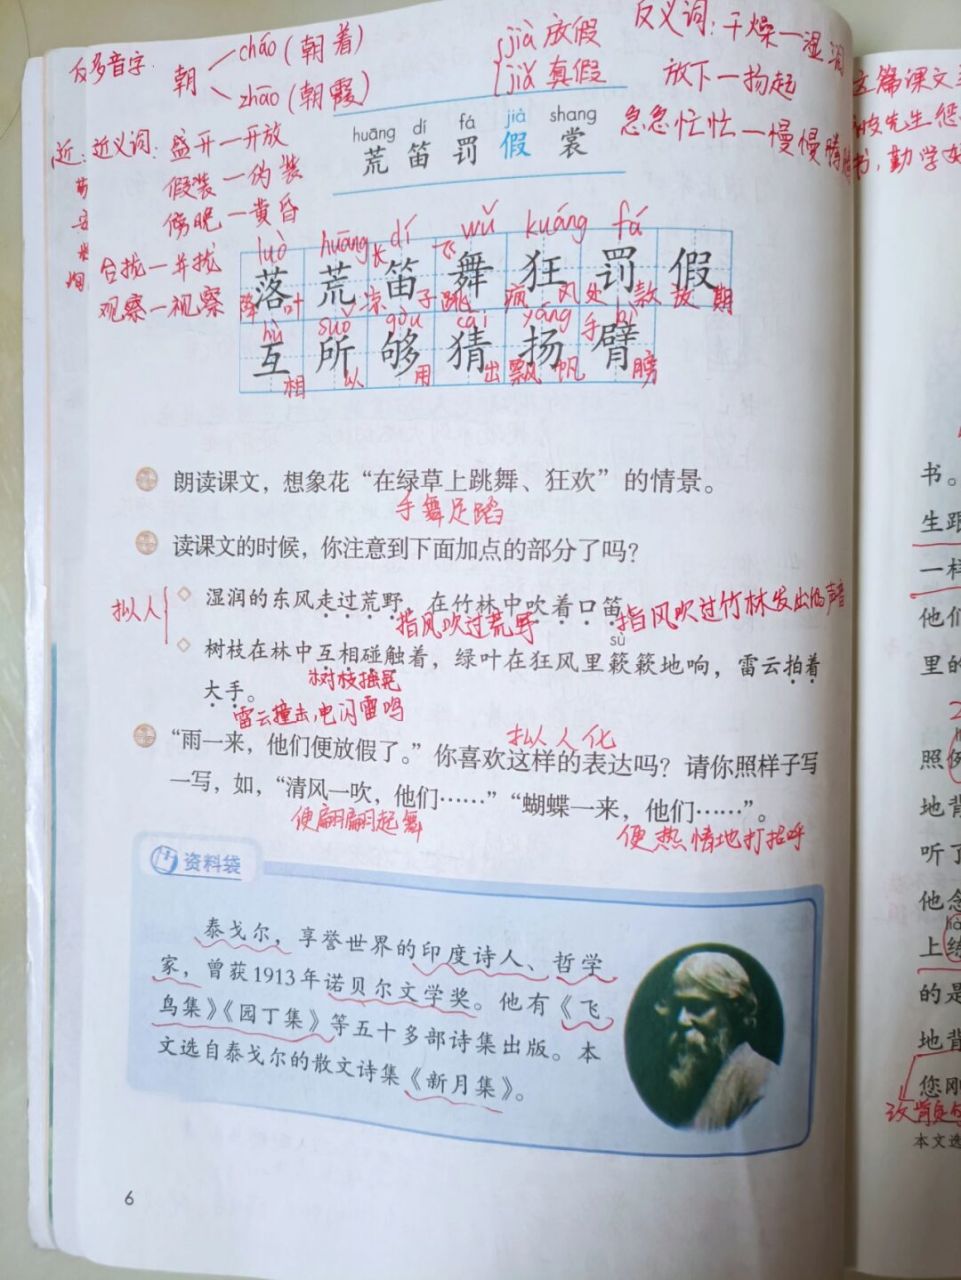 反多音字. 朝 cháo(朝着)
zhāo(朝霞)
jià 放假
jiǎ 真假
反义词: 干燥—湿润
放下—扬起
急急忙忙—慢慢腾腾
近: 近义词: 盛开—开放
假装—伪装
傍晚—黄昏
合拢—并拢
观察—视察
huāng dí fá jià shang
荒 笛 罚 假 裳
luò huāng dí wǔ kuáng fá
落 荒 笛 舞 狂 罚 假
降 叶 凉 长 子 飞 跳 疯 风 处 款 放 期
hù suǒ gòu cāi yáng bì
互 所 够 猜 扬 臂
相 以 用 出 飘 帆 手 膀
朗读课文，想象花“在绿草上跳舞、狂欢”的情景。
手舞足蹈
读课文的时候，你注意到下面加点的部分了吗？
拟人
湿润的东风走过荒野，在竹林中吹着口笛。
指风吹过荒野 指风吹过竹林发出的声音
sù
树枝在林中互相碰触着，绿叶在狂风里簌簌地响，雷云拍着
大手。
树枝摇晃
雷云撞击,电闪雷鸣
拟人化
“雨一来，他们便放假了。”你喜欢这样的表达吗？请你照样子写
一写，如，“清风一吹，他们……”“蝴蝶一来，他们……”。
便翩翩起舞 便热情地打招呼
资料袋
泰戈尔，享誉世界的印度诗人、哲学
家，曾获1913年诺贝尔文学奖。他有《飞
鸟集》《园丁集》等五十多部诗集出版。本
文选自泰戈尔的散文诗集《新月集》。
6
这篇课文
书，勤学好
书。
生跟
一样
他们
里的
照例
地背
听了
他念
上练
的是
地背
您刚
本文选